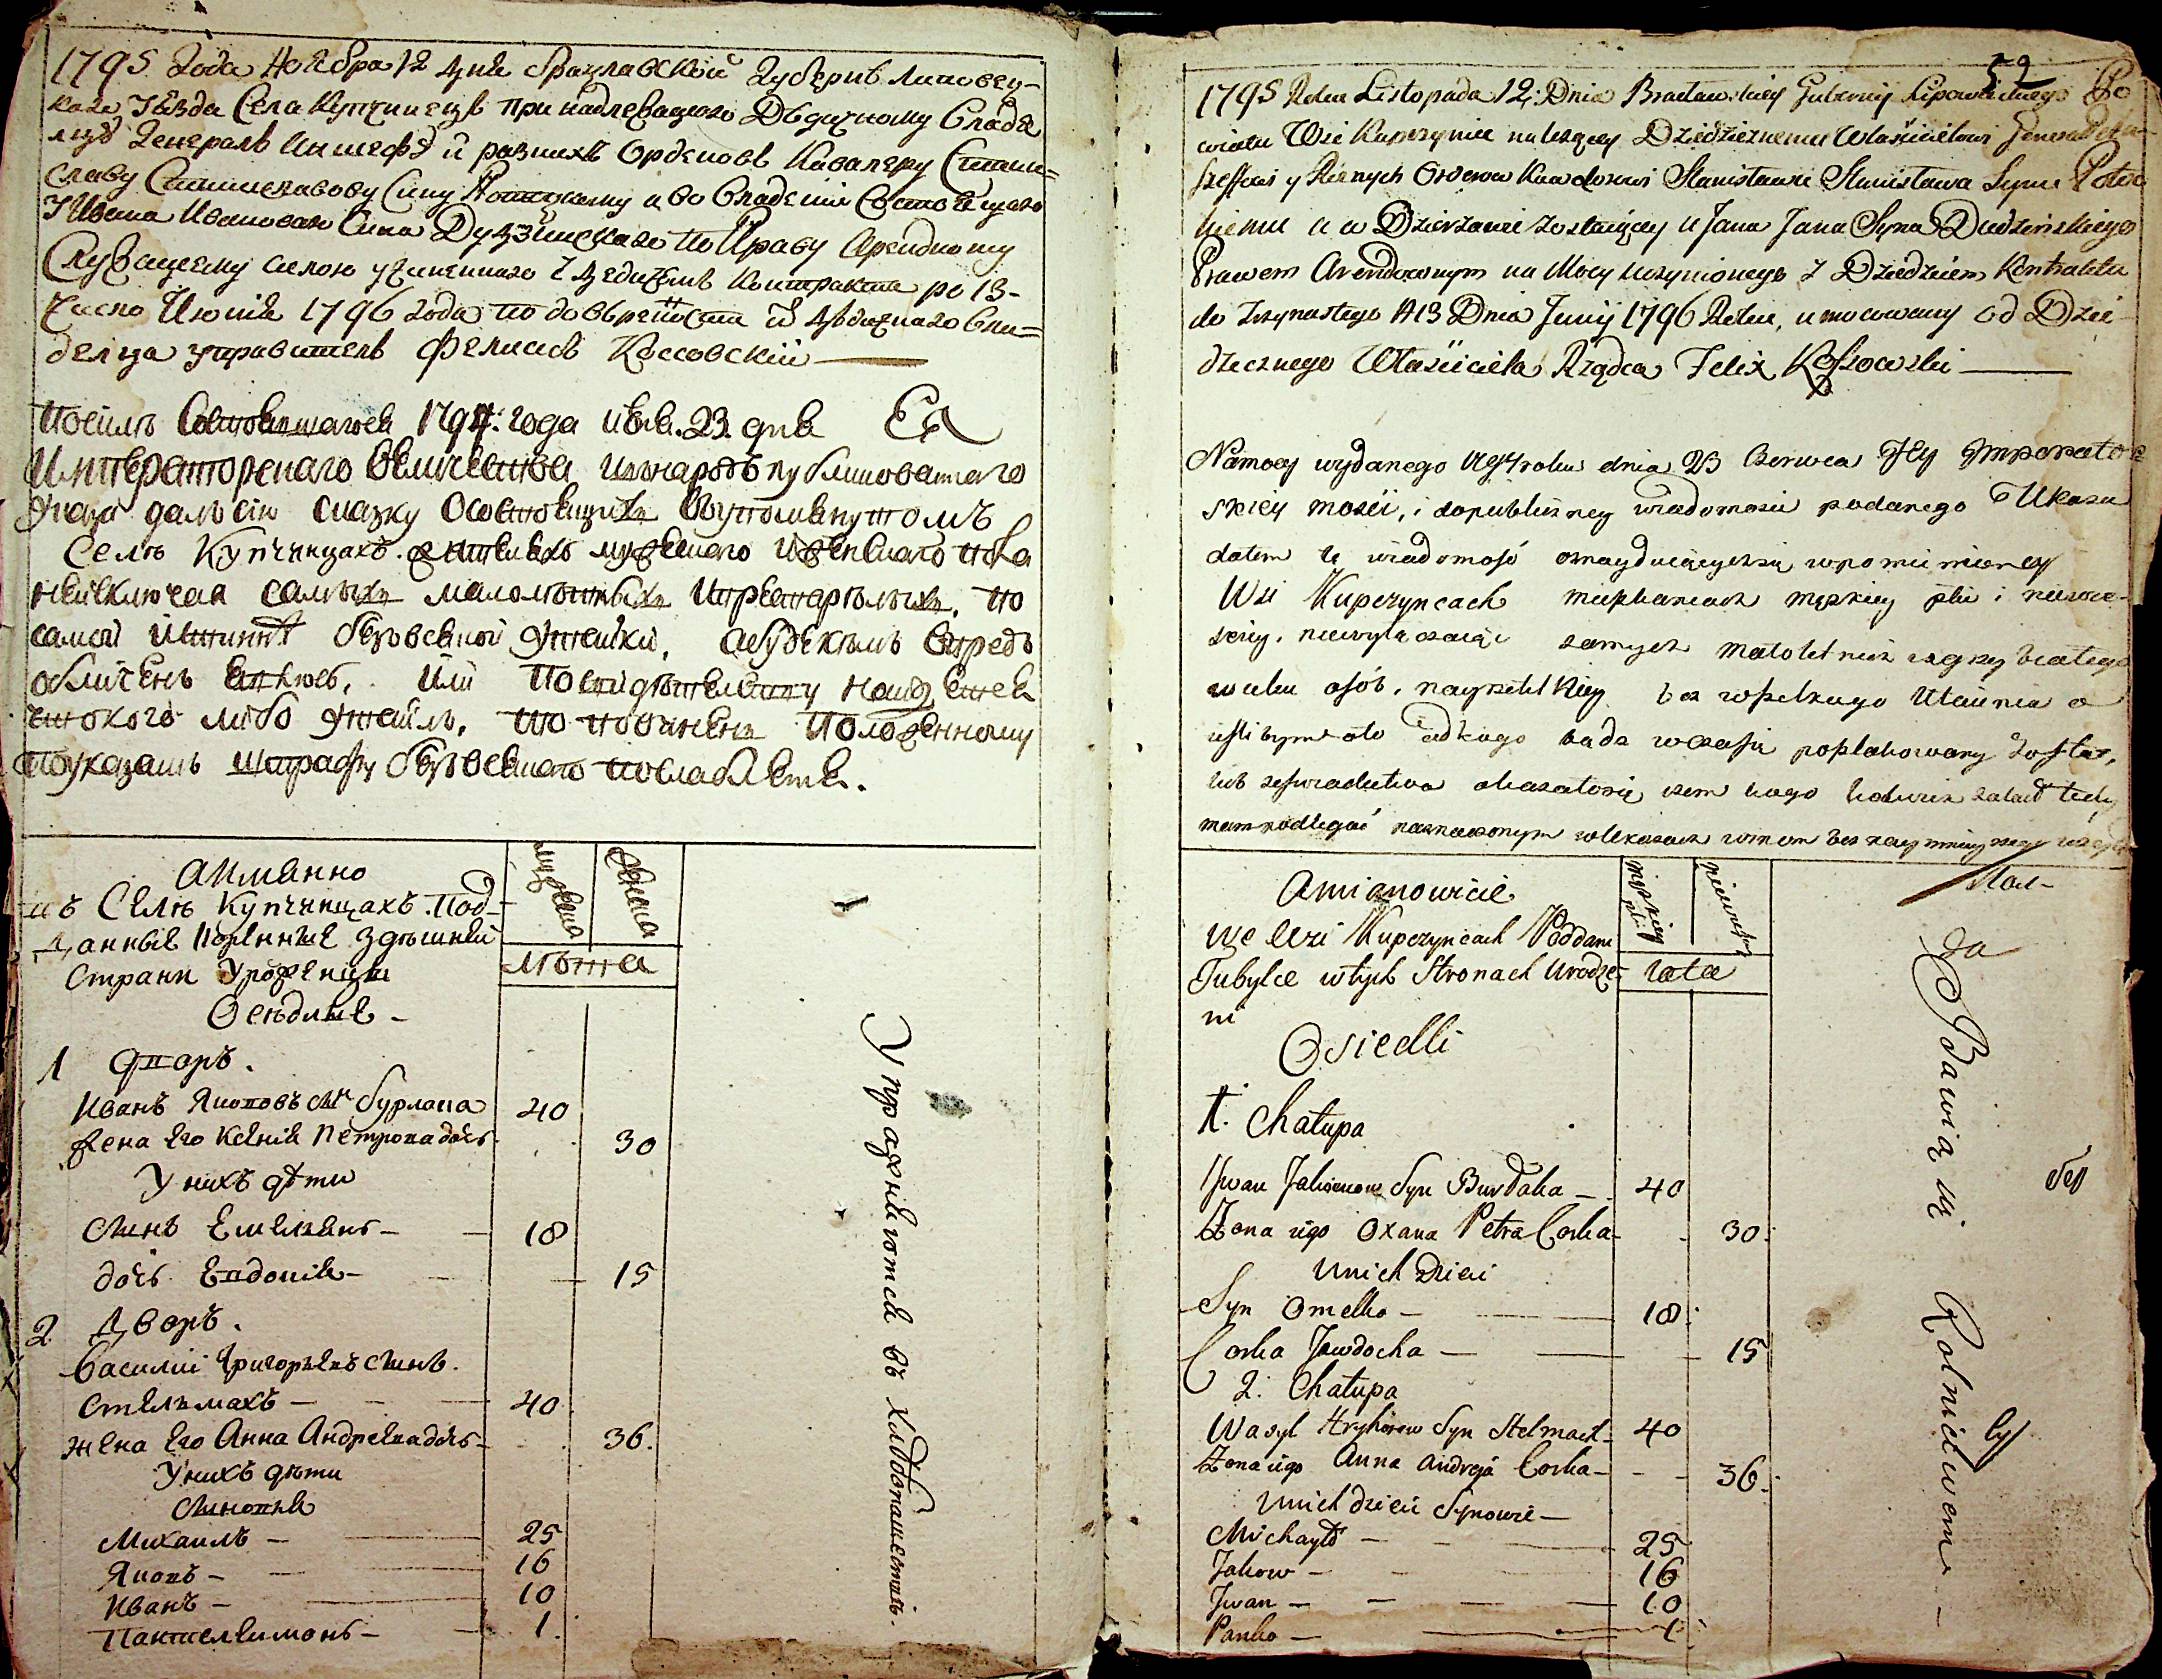 1795 Года Ноября 12 Дня Брацлавской Губерніи Липовец-
каго Уезда Села Купчинецъ принадлежащаго Дедичному Влада
лцу Генералъ Аншефу и разныхъ Орденовъ Кавалеру Стани=
славу Станиславову Сину Потоцкому а во Владеніи Состоящаго
У Ивана Иванова Сина Дудзинскаго По Праву Арендному
Служащему силою учиненнаго з Дедичемъ Контракта по 13-
число Июнія 1796 года по доверености Дедичнаго Вла=
делца управитель Феликсъ Коссовскій
По силе Состоявшагося 1794: года июня. 23. дня Ея
Императорскаго Величества и въ народъ публикованнаго
Указа далъ сію сказку о состоящихъ въ упомянутомъ
Селе Купчинцахъ жителяхъ мужескаго и женскаго пола
не исключая самыхъ малолетныхъ и престарелыхъ, по
самой истинне безъ всякой утайки, а буде кемъ впредь
обличенъ явлюсь, или По свидетельству найдется
какого либо утайка, то повиненъ Положенному
по указамъ штрафу безъ всякаго послабленія.
А имянно
въ Селе Купчинцахъ. Под-
данные Коренные здешней
Страни Уроженци
Оседлые -
мужеска
женска
лета
1 дворъ.
Иванъ Яковъ Снъ Бурлака 40
Жена Его Ксенія Петрова дочь 30
У нихъ дети
Синъ Емелянъ - 18
дочь Евдокія - 15
2 Дворъ.
Василий Григорьевъ Синъ.
Стельмахъ - 40
жена Его Анна Андреева дочь - 36.
У нихъ дети
Синовья
Михаилъ - 25
Яковъ - 16
Иванъ - 10
Пантелеимонъ - 1.
Упражняются въ хлебопашестве.
52
1795 Roku Listopada 12: Dnia Bracławskiey Gubernij Lipowieckiego Po
wiatu Wsi Kupczyniec należącey Dziedzicznemu Właścicielowi Generał An
szeffowi y Rożnych Orderow Kawalerowi Stanisławowi Stanisława Synowi Potoc
kiemu a w Dzierżawie zostaiącey u Jana Jana Syna Dudzińskiego
Prawem Arendownym na Mocy uczynionego z Dziedzicem Kontraktu
do trzynastego N13 Dnia Junij 1796 Roku, umocowany od Dzie-
dzicznego Właściciela Rządca Felix Kossowski
Na mocy wydanego 1794 roku dnia 23 Czerwca Jey Imperator
skiey mosci, i do publiczney wiadomosci podanego Ukazu
datem tę wiadomość o znayduiącychsię wpomienioney
Wsi Kupczyncach mieszkancach męzkiey płci i niewie-
sciey, niewyłączaiąc samych małoletnich i zgrzybiałego
wieku osób, nayrzetelniey bez wszelkiego Utaienia a
ieslibym oto od kogo bądź w czasie poszlakowany został,
lub zeswiadectwa okazałosię czem kogo kolwiek zataił tedy
mam podlegać naznaczonym w Ukazach winom bez nay mnieyszego względu
Amianowicie
we Wsi Kupczyncach Poddani
Tubylce w tych Stronach Urodze-
ni
Osiedli
męzkiey płci
niewiesci
lata
1. Chałupa
Jwan Jakowow Syn Burłaka - 40
Zona iego Oxana Petra Corka - 30:
Unich Dzieci
Syn Omelko - 18:
Corka Jewdocha - 15
2. Chałupa
Wasyl Hryhorow Syn Stelmach - 40
Zona iego Anna Andreja Corka - 36:
Unich dzieci Synowie -
Michayło - 25
Jakow - 16
Jwan - 10
Panko - 1:
Bawią się Rolnictwem -